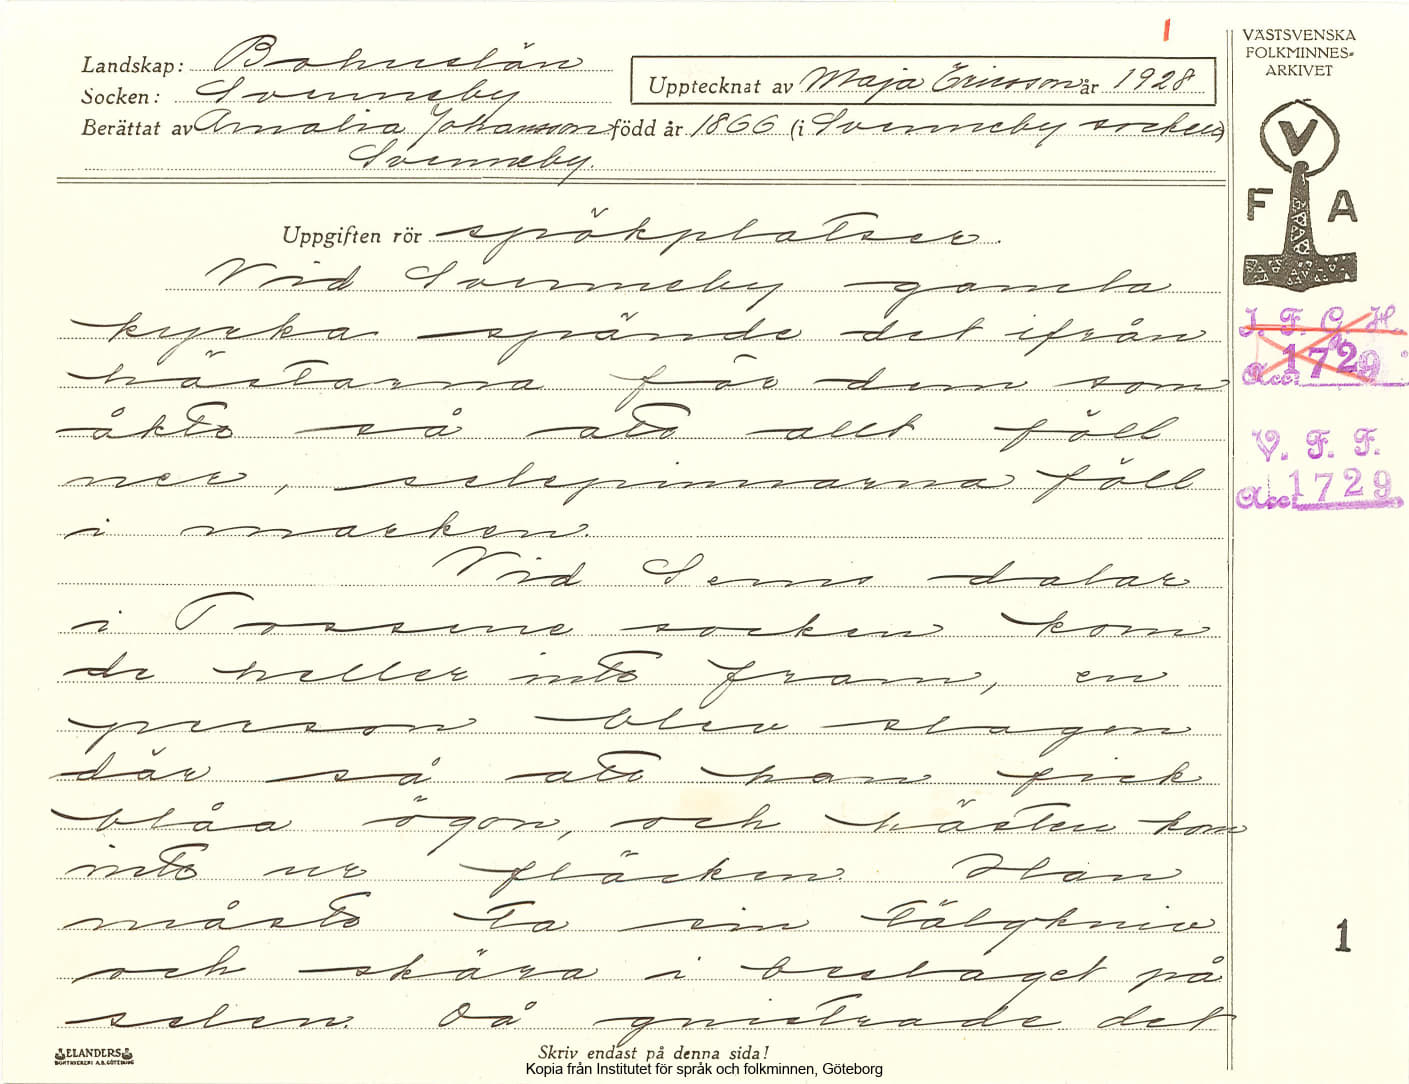 1
VÄSTSVENSKA
FOLKMINNES-
ARKIVET
Landskap: Bohuslän
Socken: Svenneby
Upptecknat av Maja Ericsson år 1928
Berättat av Amalia Johansson född år 1866 (i Svenneby socken)
Svenneby.
V
F A
Uppgiften rör spökplatser.
Vid Svenneby gamla
kyrka spände det ifrån
hästarna för dem som
åkte så att allt föll
ner, selepinnarna föll
i marken.
Vid Sems dalar
i Tossene socken kom
de heller inte fram, en
person blev slagen
där så att han fick
blåa ögon, och hästen kom
inte ur fläcken. Han
måste ta sin tälgkniv
och skära i beslaget på
selen. Då gnistrade det
I. F. G. H.
Acc. 1729
V. F. F.
Acc. 1729
1
ELANDERS
BOKTRYCKERI A.B. GÖTEBORG
Skriv endast på denna sida!
Kopia från Institutet för språk och folkminnen, Göteborg